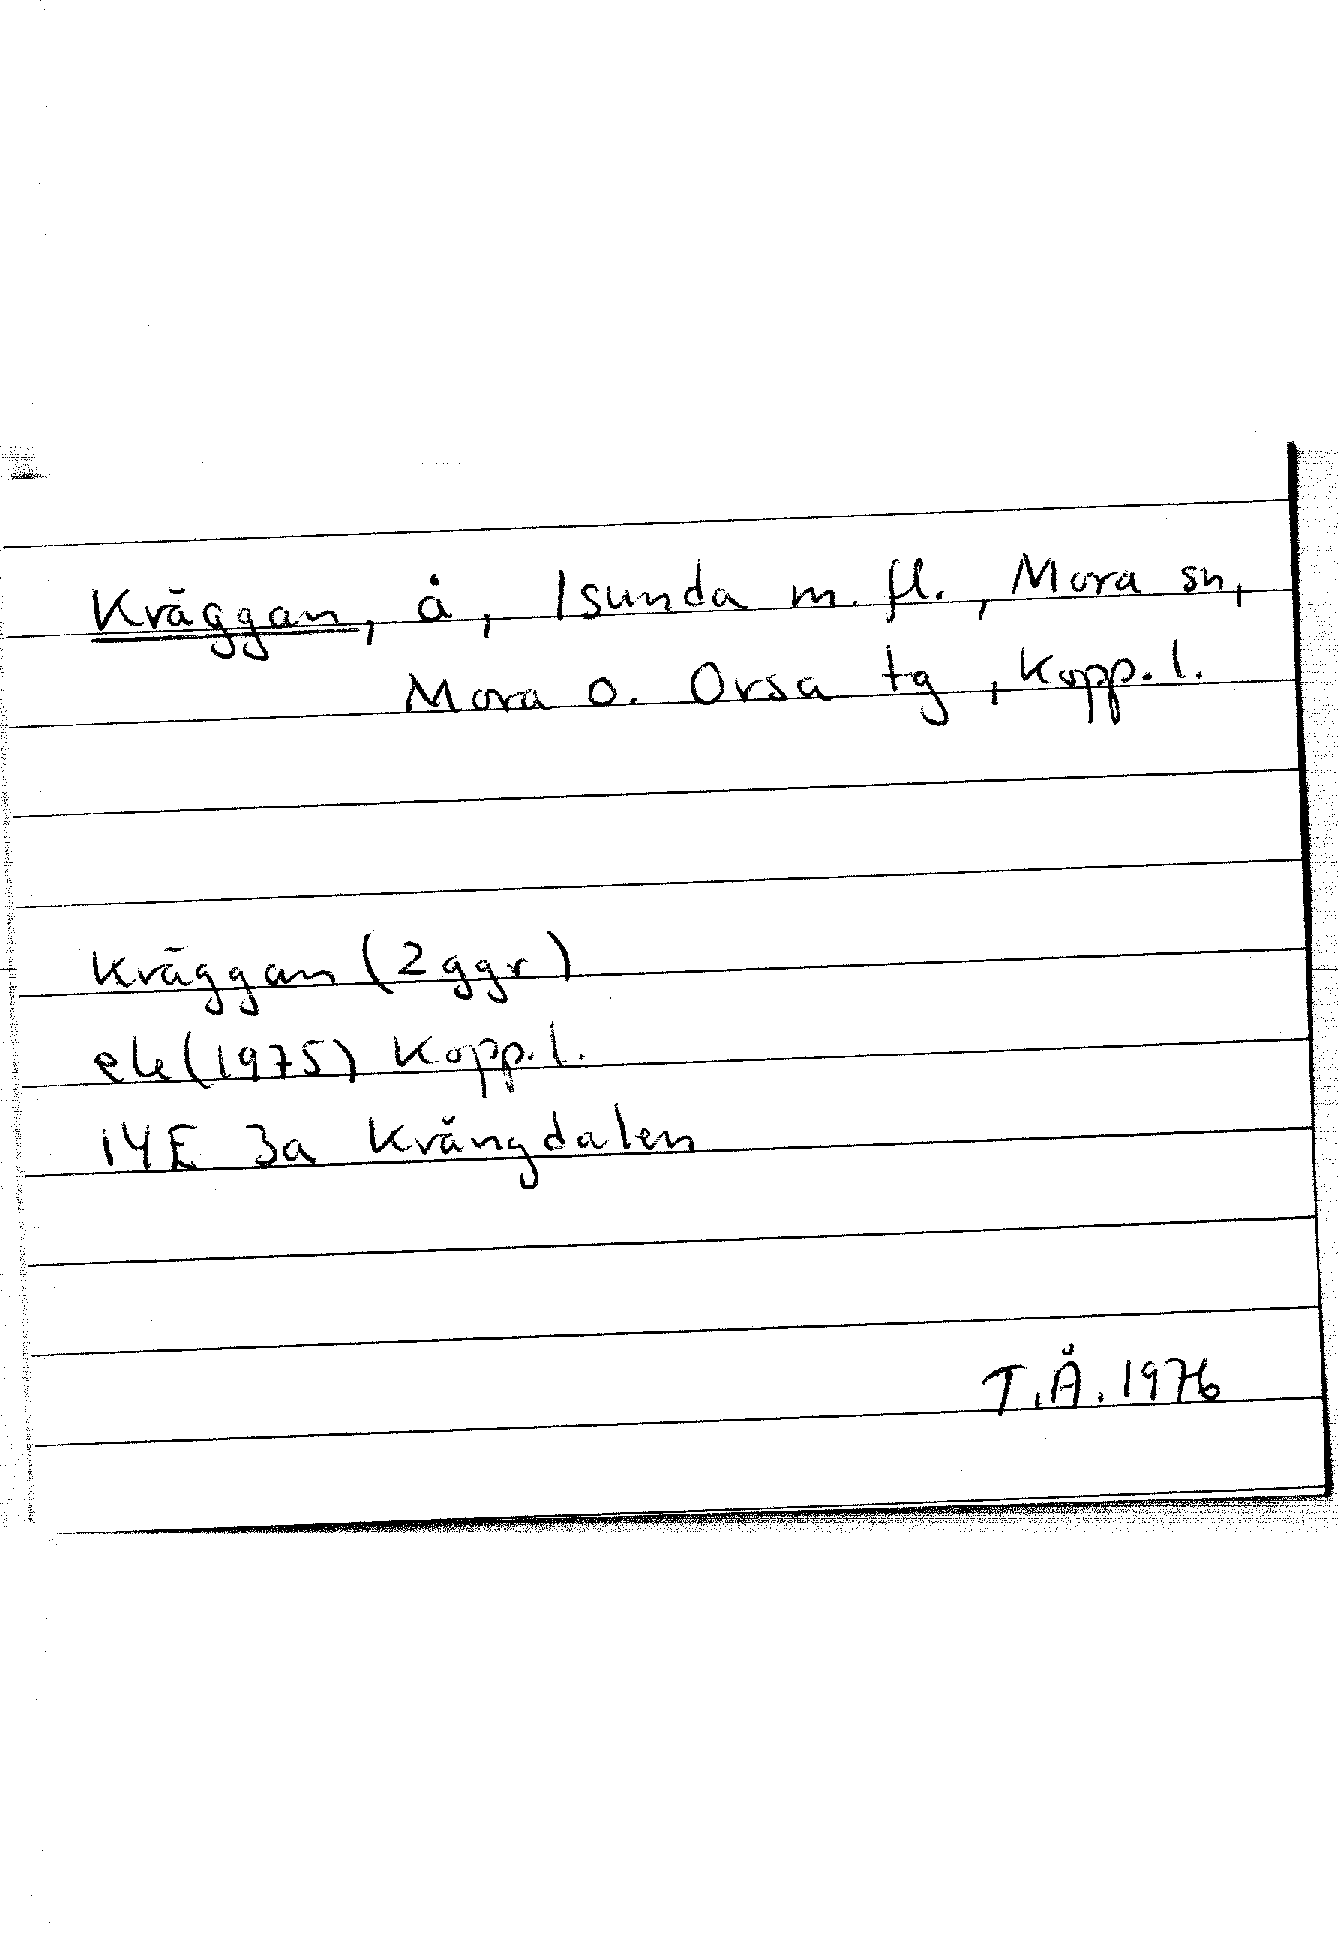 Kräggan, å, Isunda m. fl., Mora sn,
Mora o. Orsa tg, Kopp. l.
Kräggan (2 ggr)
ek (1975) Kopp. l.
14E 3a Krångdalen
T.Å. 1976